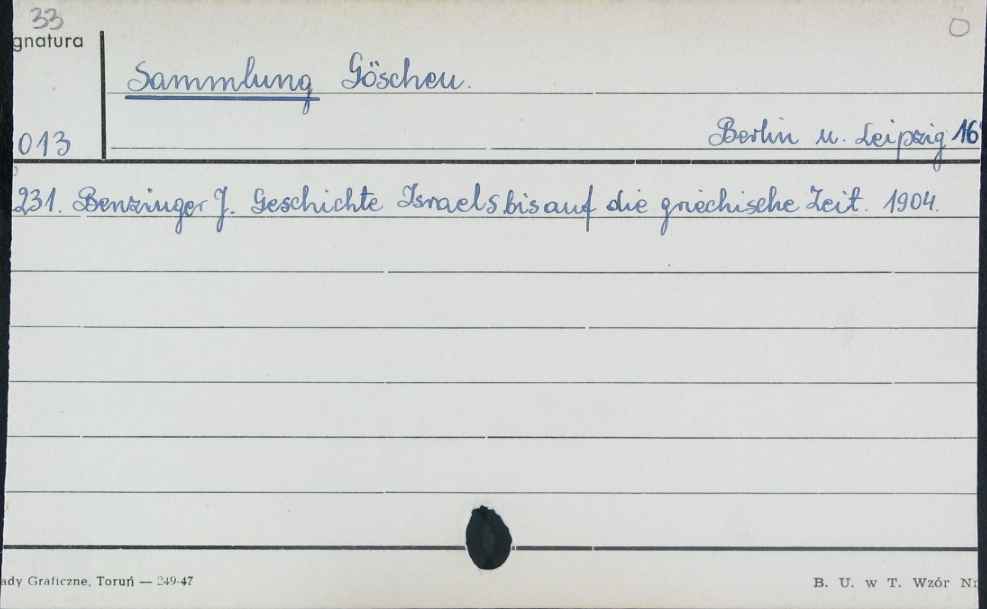 33
gnatura
Sammlung Göschen.
013
Berlin u. Leipzig 16°
231. Benzinger J. Geschichte Israels bis auf die griechische Zeit. 1904.
ady Graficzne, Toruń — 249-47
B. U. w T. Wzór Nr